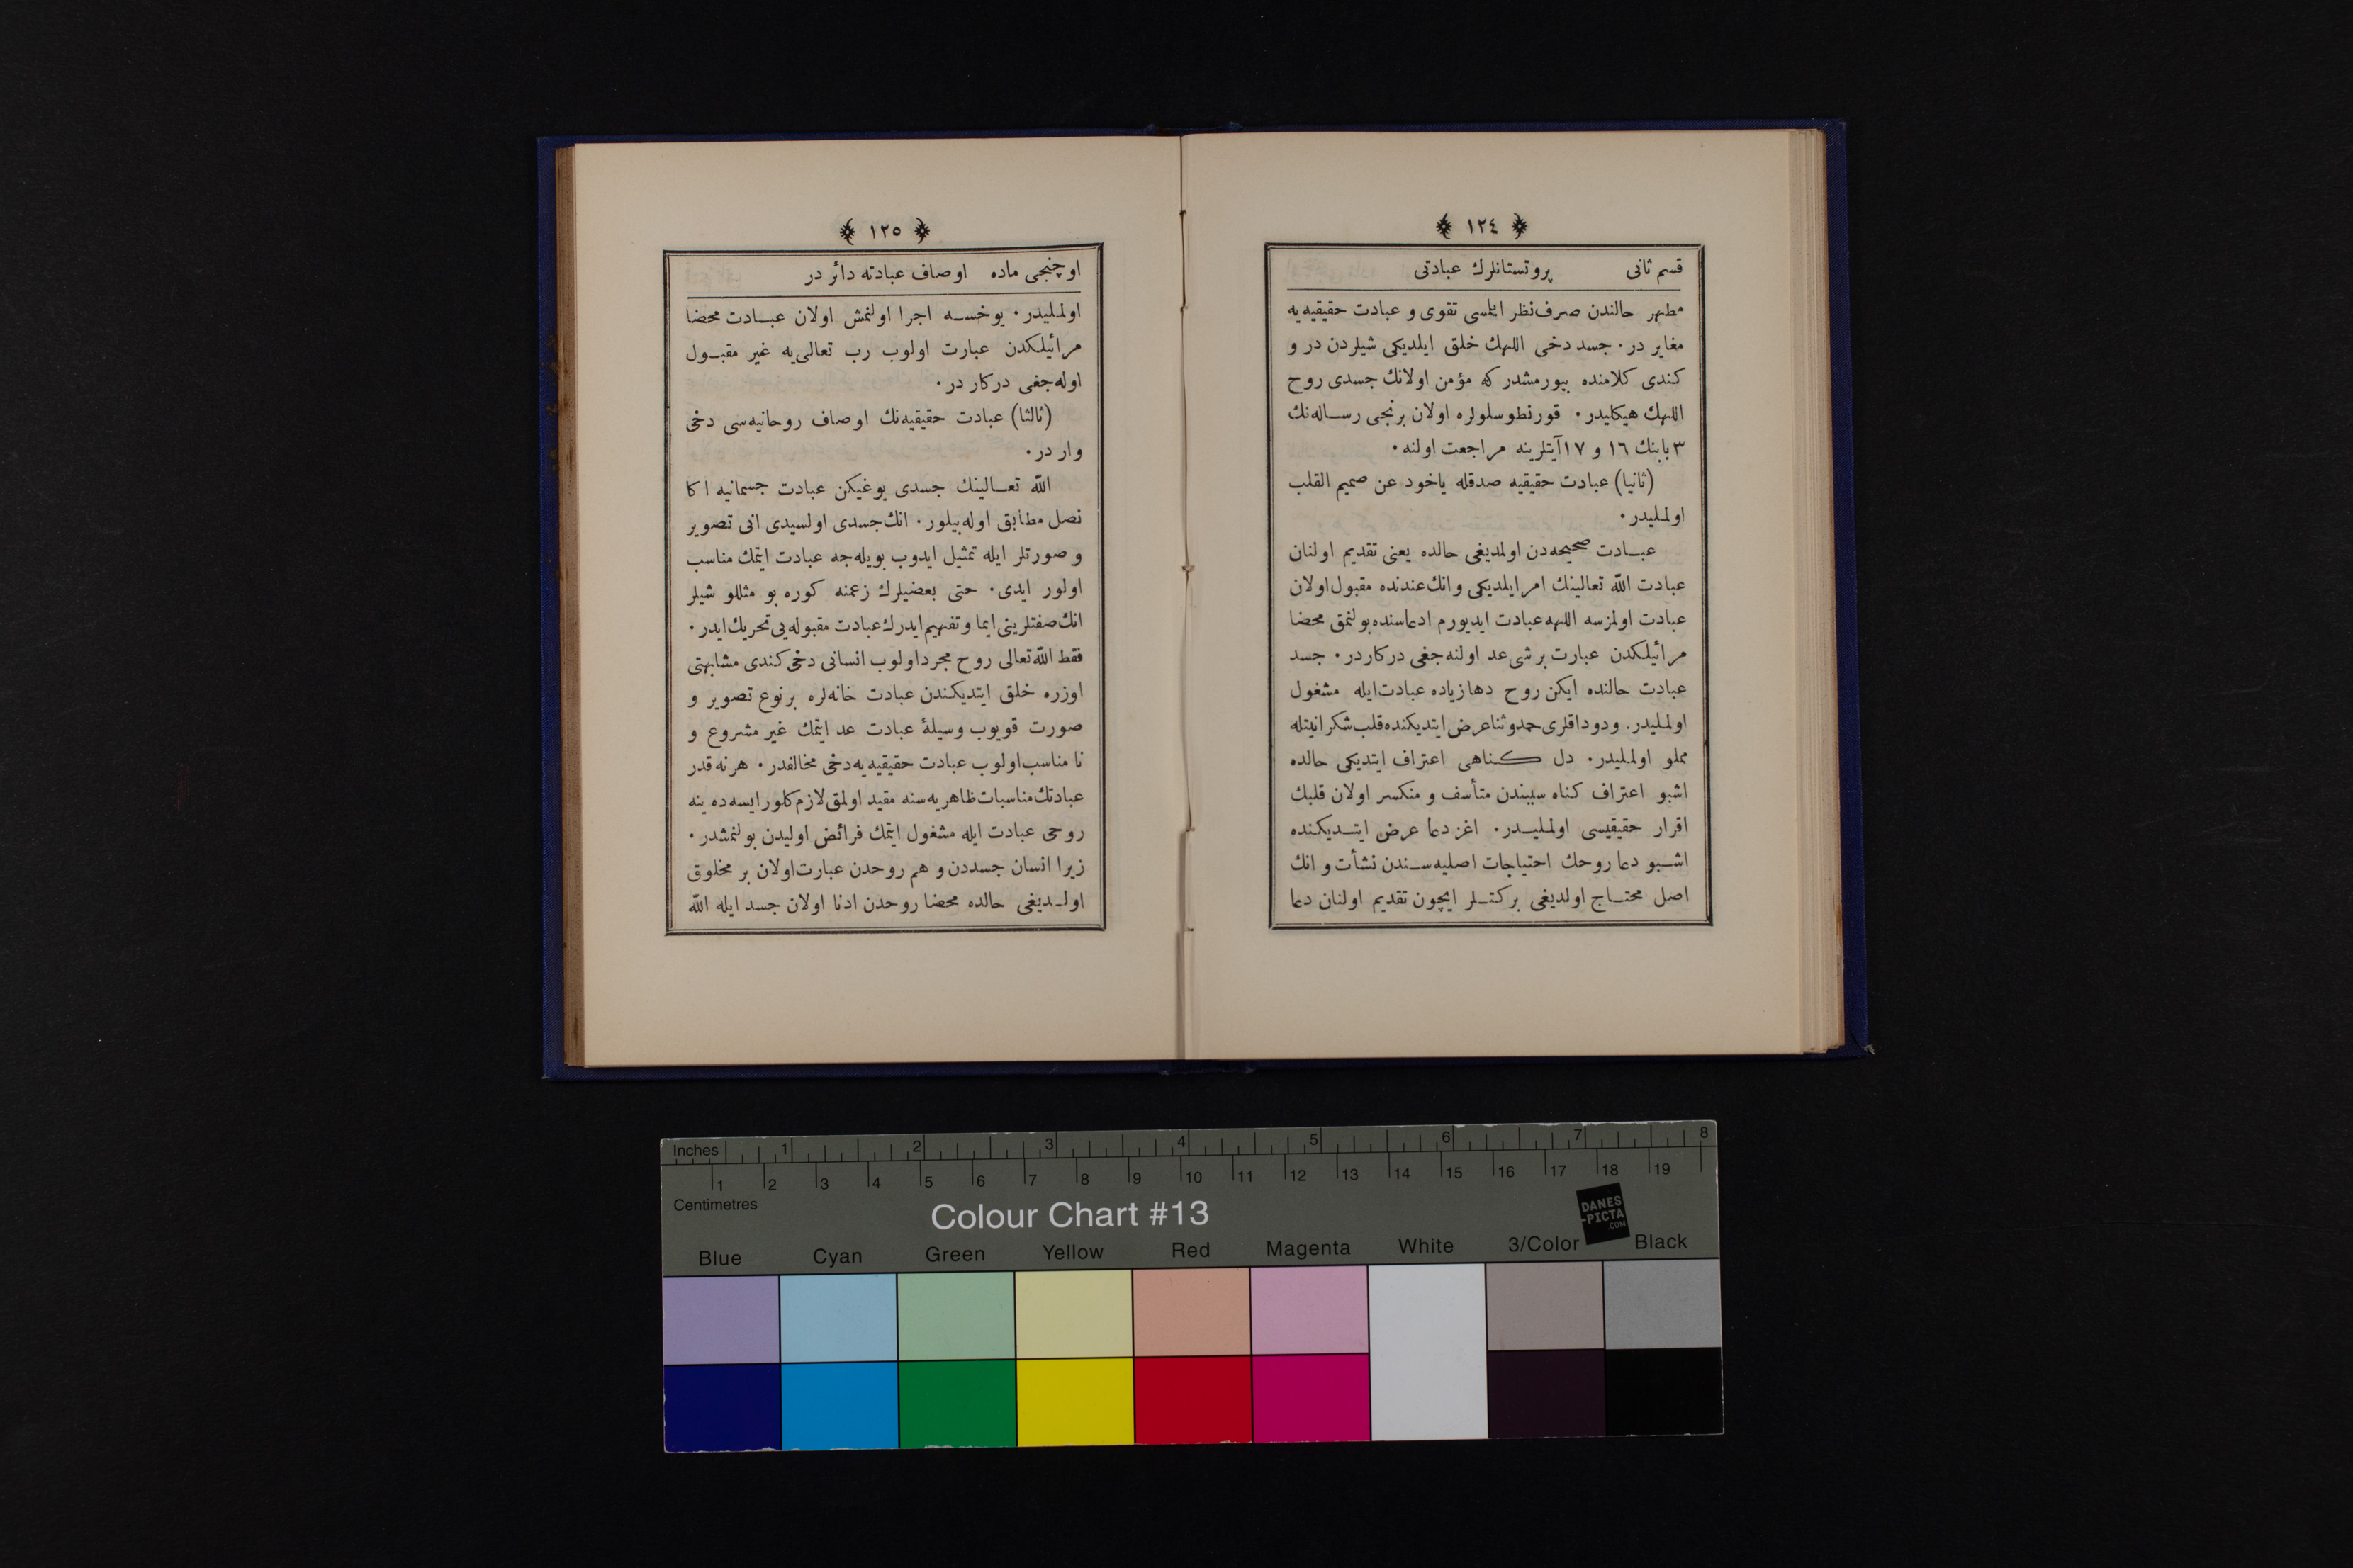 ﴿ ١٢٤ ﴾
قسم ثانی پروتستانلرك عبادتی
مطهر حالندن صرف نظر ایلمسی تقوی و عبادت حقیقیه یه
مغایر در٠ جسد دخی اللهك خلق ایلدیکی شیلردن در و
کندی کلامنده بیورمشدر که مؤمن اولانك جسدی روح
اللهك هیکلیدر٠ قورنطوسلولره اولان برنجی رساله نك
٣ بابنك ١٦ و ١٧ آیتلرینه مراجعت اولنه٠
(ثانیا) عبادت حقیقیه صدقله یاخود عن صمیم القلب
اولملیدر٠
عبادت صحیحه دن اولمدیغی حالده یعنی تقدیم اولنان
عبادت الله تعالینك امر ایلدیکی و انك عندنده مقبول اولان
عبادت اولمزسه اللهه عبادت ایدیورم ادعاسنده بولنمق محضا
مرائیلکدن عبارت بر شی عد اولنه جغی درکار در٠ جسد
عبادت حالنده ایکن روح دها زیاده عبادت ایله مشغول
اولملیدر٠ و دوداقلری حمد و ثنا عرض ایتدیکنده قلب شکرانیتله
مملو اولملیدر٠ دل کناهی اعتراف ایتدیکی حالده
اشبو اعتراف کناه سببندن متأسف و منکسر اولان قلبك
اقرار حقیقیسی اولملیدر٠ اغز دعا عرض ایتدیکنده
اشبو دعا روحك احتیاجات اصلیه سندن نشأت و انك
اصل محتاج اولدیغی برکتلر ایچون تقدیم اولنان دعا
﴿ ١٢٥ ﴾
اوچنجی ماده اوصاف عبادته دائر در
اولملیدر٠ یوخسه اجرا اولنمش اولان عبادت محضا
مرائیلکدن عبارت اولوب رب تعالی یه غیر مقبول
اوله جغی درکار در٠
(ثالثا) عبادت حقیقیه نك اوصاف روحانیه سی دخی
وار در٠
الله تعالینك جسدی یوغیکن عبادت جسمانیه اکا
نصل مطابق اوله بیلور٠ انك جسدی اولسیدی انی تصویر
و صورتلر ایله تمثیل ایدوب بویله جه عبادت ایتمك مناسب
اولور ایدی٠ حتی بعضیلرك زعمنه کوره بو مثللو شیلر
انك صفتلرینی ایما و تفهیم ایدرك عبادت مقبوله یی تحریك ایدر٠
فقط الله تعالی روح مجرد اولوب انسانی دخی کندی مشابهتی
اوزره خلق ایتدیکندن عبادت خانه لره بر نوع تصویر و
صورت قویوب وسیلهٔ عبادت عد ایتمك غیر مشروع و
نا مناسب اولوب عبادت حقیقیه یه دخی مخالفدر٠ هر نه قدر
عبادتك مناسبات ظاهریه سنه مقید اولمق لازم کلور ایسه ده ینه
روحی عبادت ایله مشغول ایتمك فرائض اولیدن بولنمشدر٠
زیرا انسان جسددن و هم روحدن عبارت اولان بر مخلوق
اولدیغی حالده محضا روحدن ادنا اولان جسد ایله الله
Inches 1 2 3 4 5 6 7 8
1 2 3 4 5 6 7 8 9 10 11 12 13 14 15 16 17 18 19
Centimetres
Colour Chart #13
DANES
-PICTA
.COM
Blue Cyan Green Yellow Red Magenta White 3/Color Black